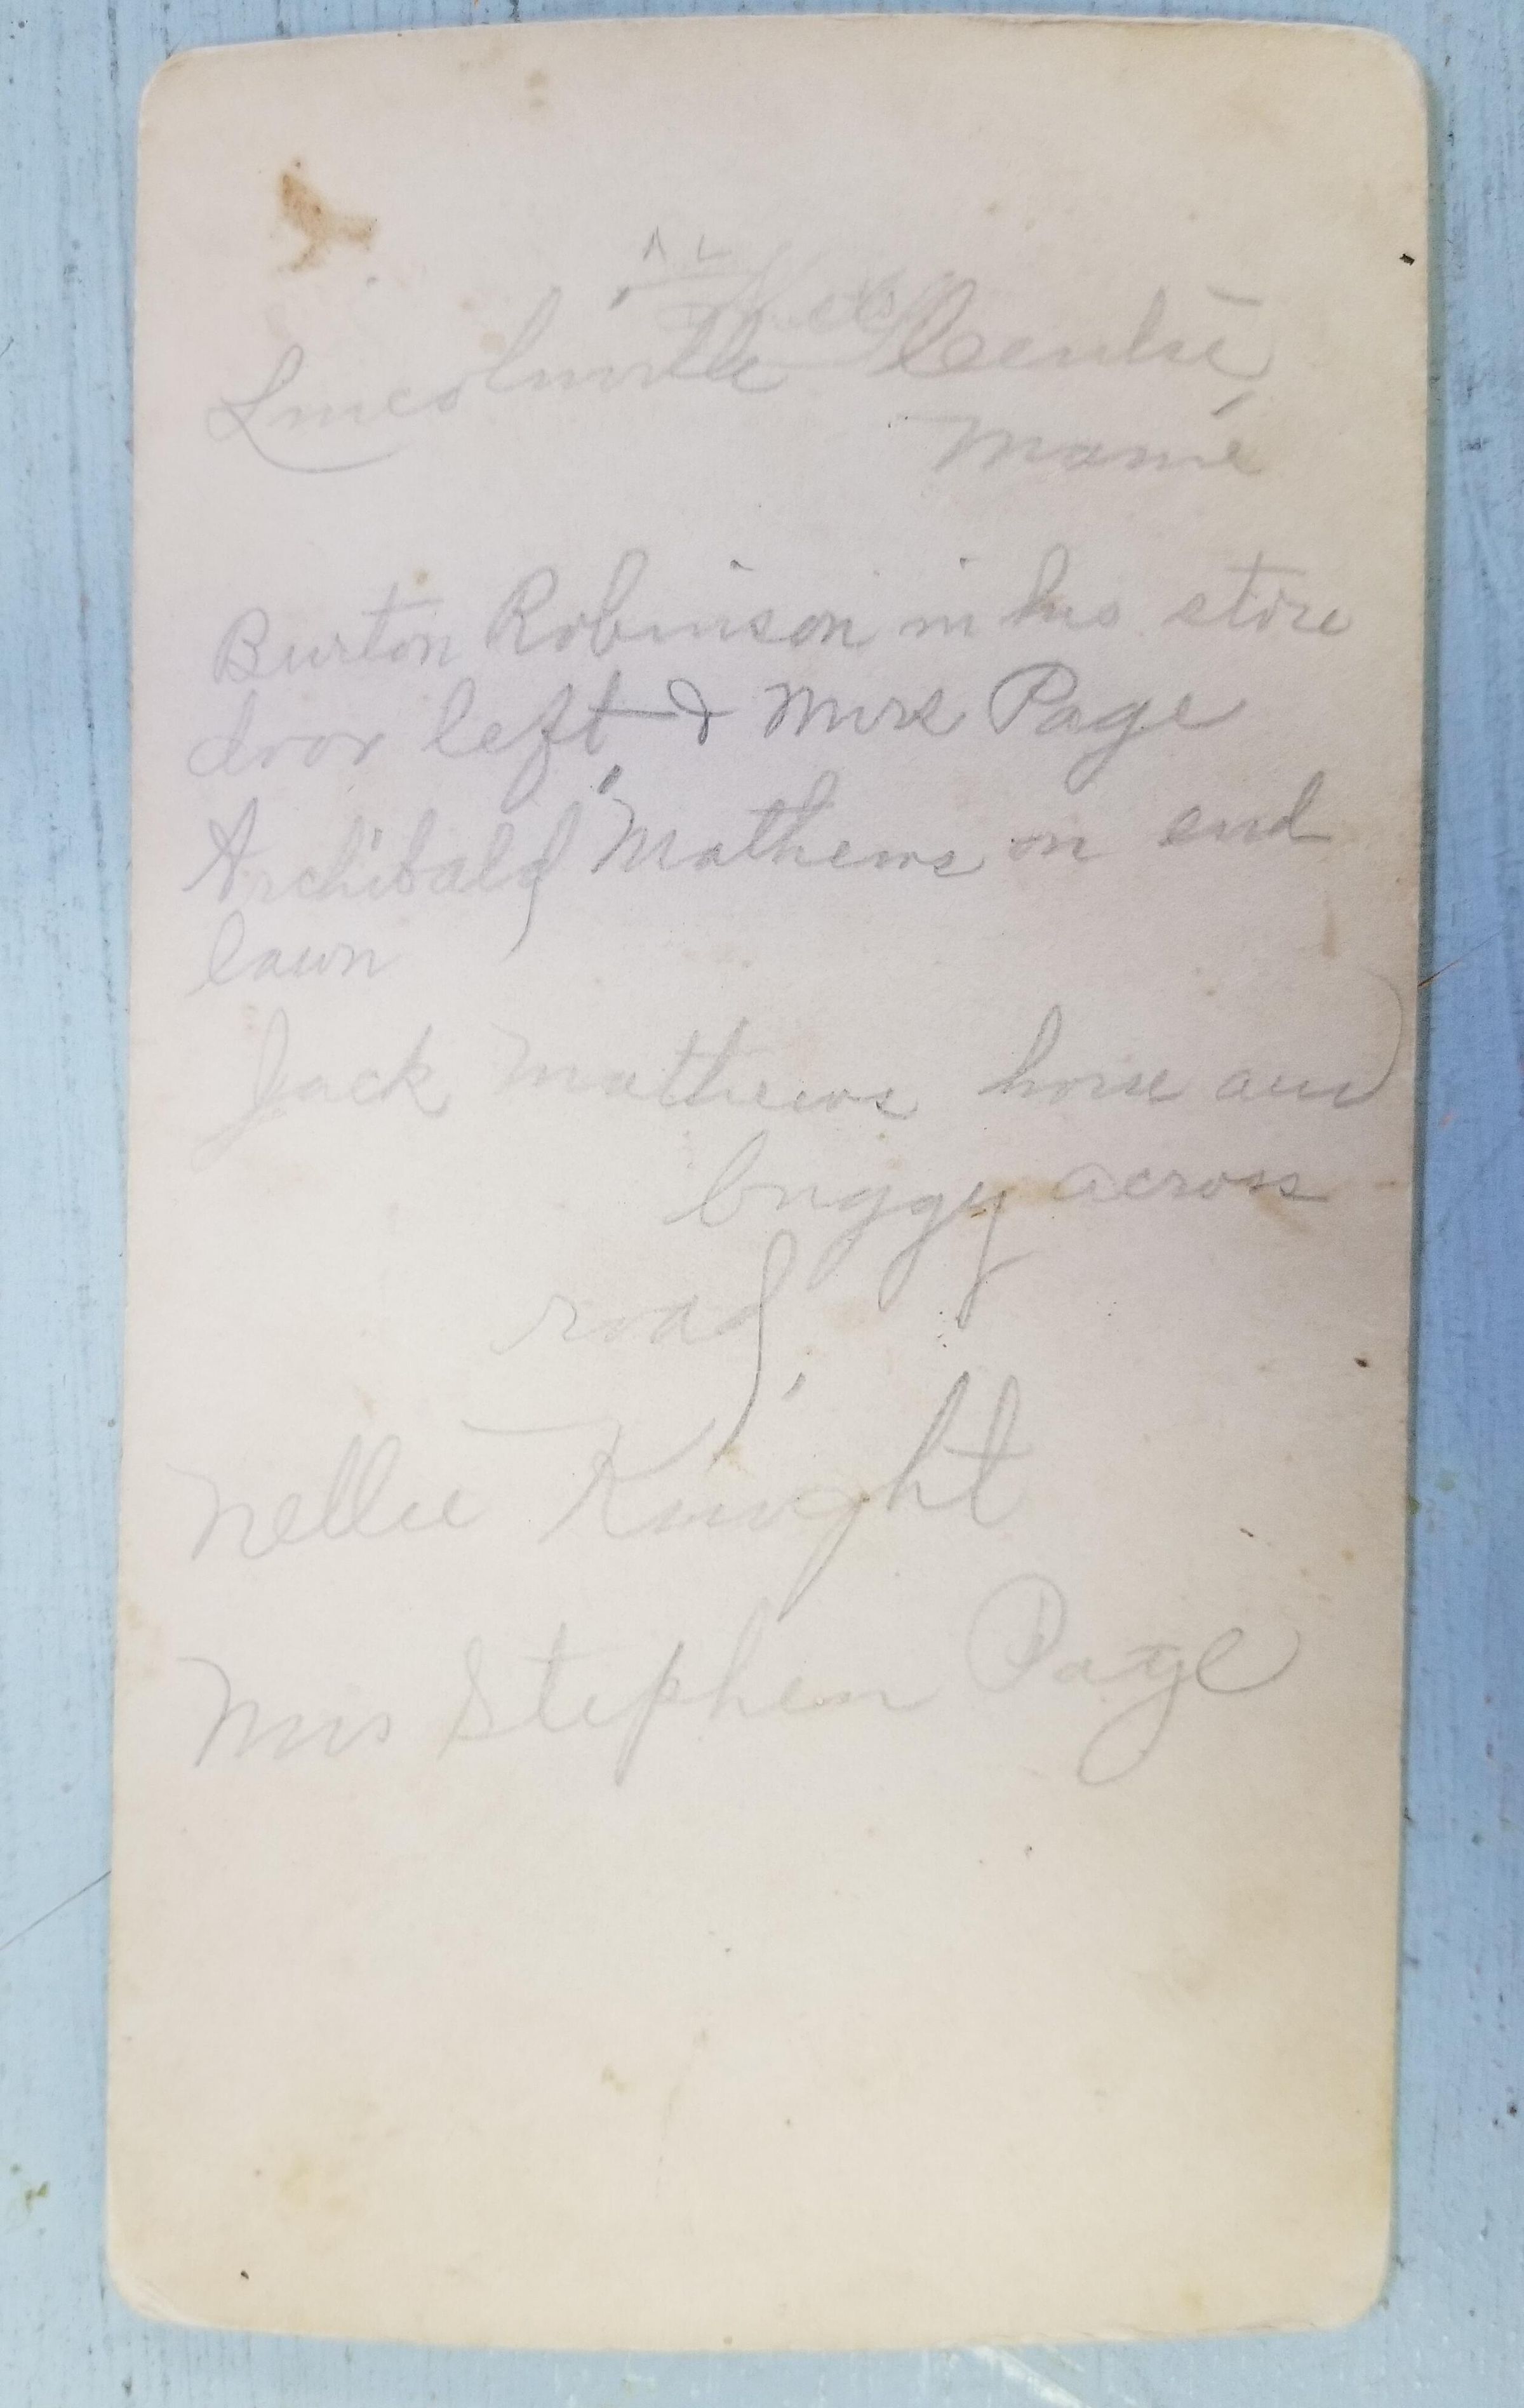 Lincolnville Centre,
Maine
Burton Robinson in his store
door left, & Mrs Page
Archibald Mathews on end
lawn
Jack Mathews horse and
buggy across
road,
Nellie Knight
Mrs Stephen Page